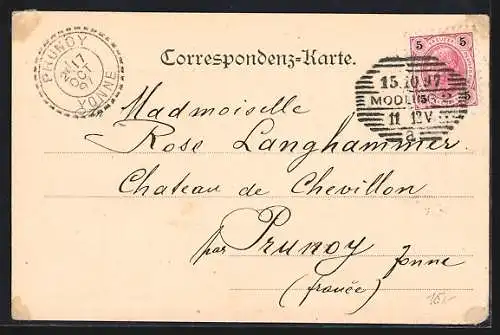 PRUNOY
17
OCT
97
YONNE
Correspondenz-Karte.
5 5
5
15.10.97
MÖDLING
11-12V
a
Mademoiselle
Rose Langhammer
Chateau de Chevillon
par Prunoy Yonne
(france)